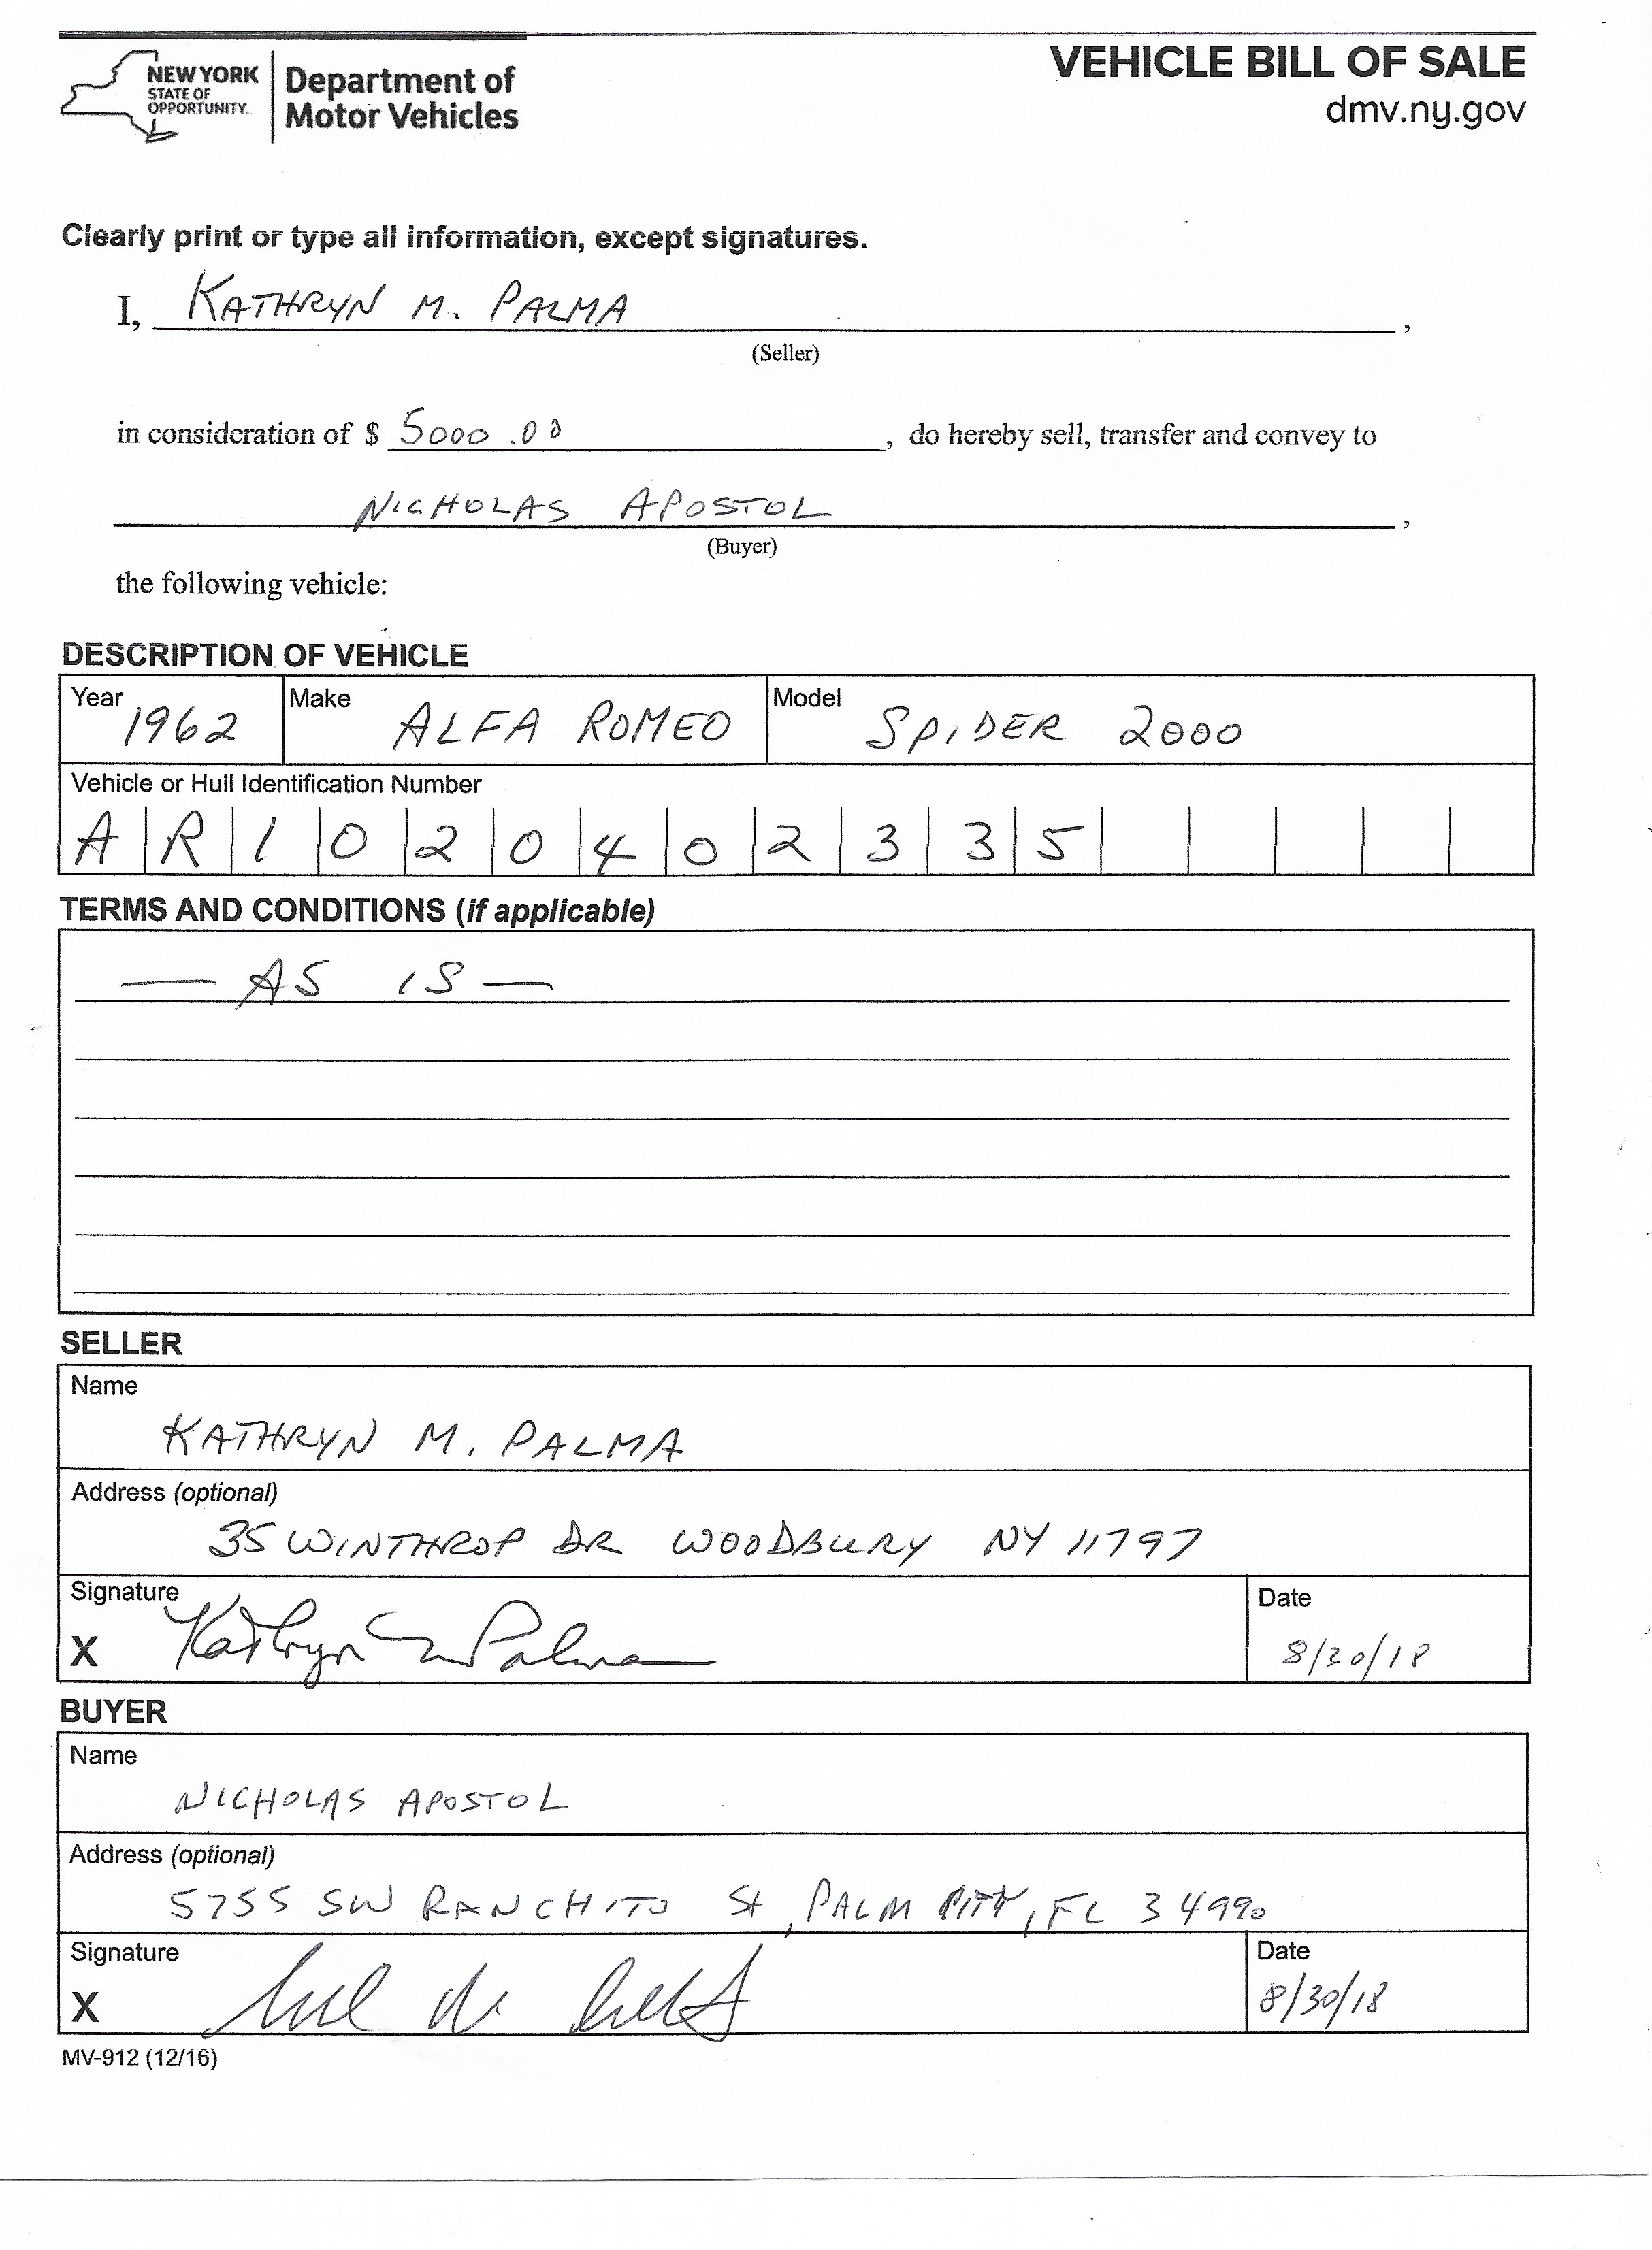 NEW YORK
STATE OF
OPPORTUNITY.
Department of
Motor Vehicles
VEHICLE BILL OF SALE
dmv.ny.gov
Clearly print or type all information, except signatures.
I, KATHRYN M. PALMA,
(Seller)
in consideration of $ 5000.00, do hereby sell, transfer and convey to
NICHOLAS APOSTOL,
(Buyer)
the following vehicle:
DESCRIPTION OF VEHICLE
Year 1962 Make ALFA ROMEO Model SPIDER 2000
Vehicle or Hull Identification Number
A R 1 0 2 0 4 0 2 3 3 5
TERMS AND CONDITIONS (if applicable)
— AS IS —
SELLER
Name
KATHRYN M. PALMA
Address (optional)
35 WINTHROP DR WOODBURY NY 11797
Signature Date
X Kathryn M Palma 8/30/18
BUYER
Name
NICHOLAS APOSTOL
Address (optional)
5755 SW RANCHITO St, PALM CITY, FL 34990
Signature Date
X 8/30/18
MV-912 (12/16)